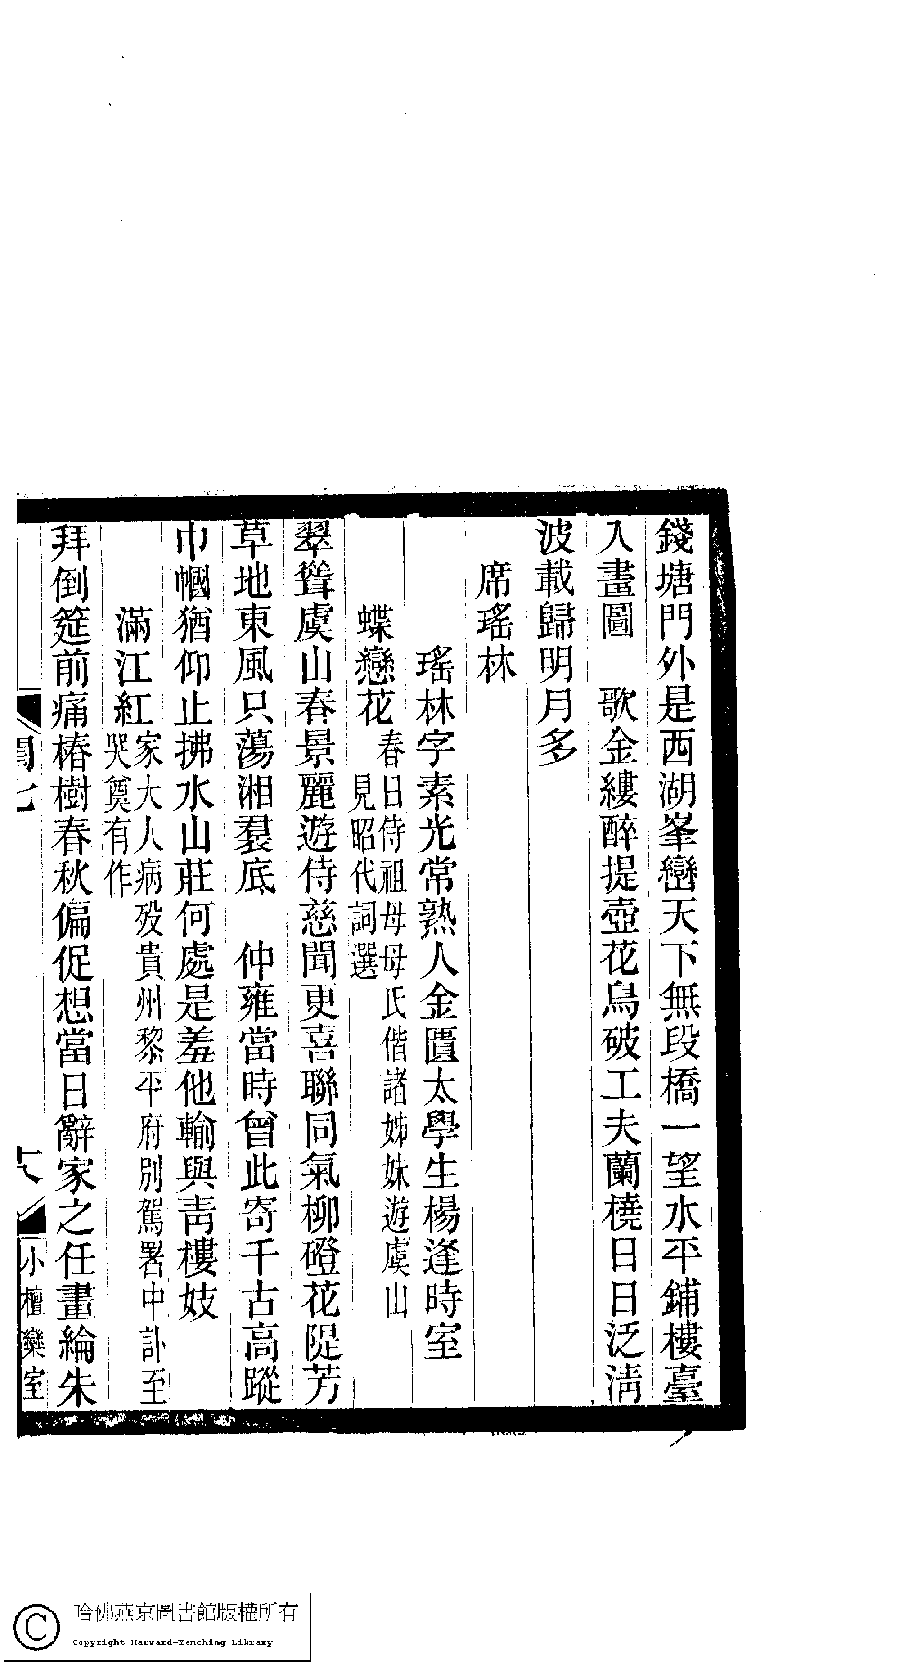 錢塘門外是西湖峯巒天下無段橋一望水平鋪樓臺
入畫圖　歌金縷醉提壺花鳥破工夫蘭橈日日泛淸
波載歸明月多
席瑤林
瑤林字素光常熟人金匱太學生楊逢時室
蝶戀花
春日侍祖母母氏偕諸姊妹遊虞山
見昭代詞選
翠聳虞山春景麗遊侍慈聞更喜聯同氣柳磴花隄芳
草地東風只蕩湘裠底　仲雍當時曾此寄千古高蹤
巾幗猶仰止拂水山莊何處是羞他輸與靑樓妓
滿江紅
家大人病殁貴州黎平府別駕署中訃至
哭奠有作
拜倒筵前痛椿樹春秋偏促想當日辭家之任畫綸朱
小檀欒室
哈佛燕京圖書館版權所有
Copyright Harvard-Yenching Library